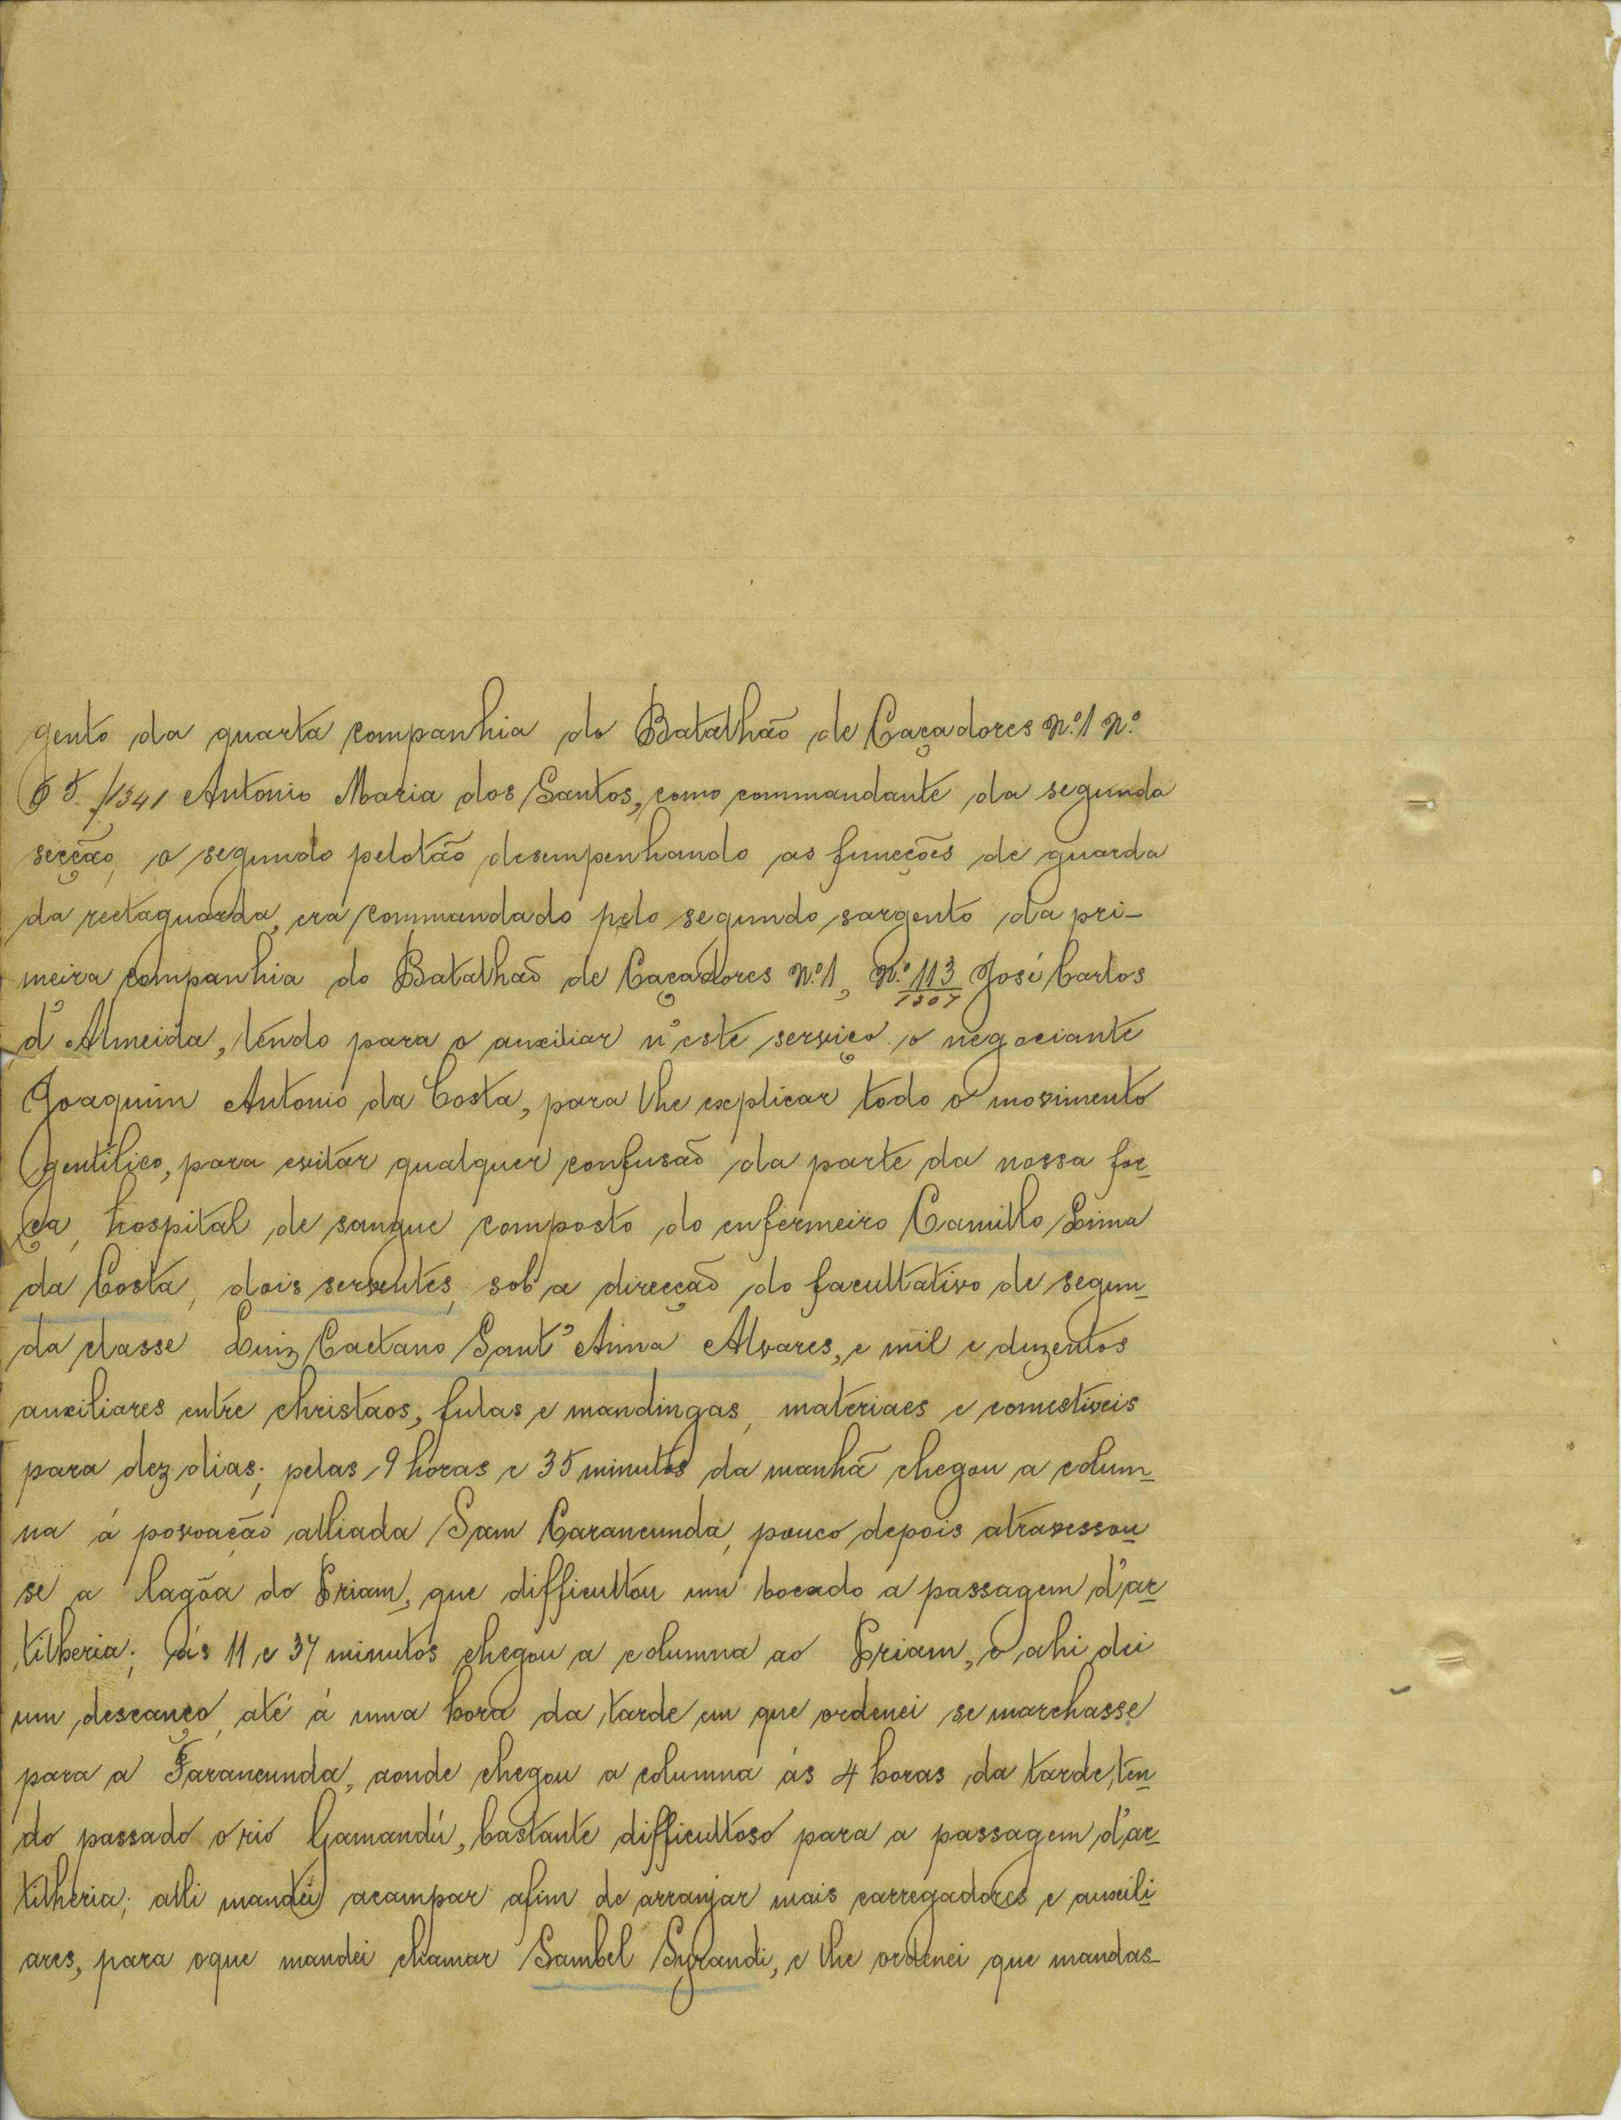 gento da quarta companhia do Batalhão de Caçadores Nº.1 Nº.
65/1341 Antonio Maria dos Santos, como commandante da segunda
secção, o segundo pelotão desempenhando as funcções de guarda
da rectaguarda, era commandado pelo segundo sargento da pri-
meira companhia do Batalhão de Caçadores Nº.1, Nº. 113/1307 José Carlos
d'Almeida, tendo para o auxiliar n'este serviço o negociante
Joaquim Antonio da Costa, para lhe explicar todo o movimento
gentilico, para evitar qualquer confusão da parte da nossa for-
ça, hospital de sangue composto do enfermeiro Camillo Lima
da Costa, dois serventes, sob a direcção do facultativo de segun-
da classe Luiz Caetano Sant'Anna Alvares, e mil e duzentos
auxiliares entre christãos, fulas e mandingas, materiaes e comestiveis
para dez dias; pelas 9 horas e 35 minutos da manhã chegou a colum-
na á povoação alliada Sam Carancunda, pouco depois atravessou-
se a lagôa do Priam, que difficultou um bocado a passagem d'ar-
tilheria; ás 11 e 37 minutos chegou a columna ao Priam, e ahi dei
um descanço, até á uma hora da tarde em que ordenei se marchasse
para a Farancunda, aonde chegou a columna ás 4 horas da tarde, ten-
do passado o rio Gamandú, bastante difficultoso para a passagem d'ar-
tilheria; alli mandei acampar afim de arranjar mais carregadores e auxili-
ares, para o que mandei chamar Sambel Syrandi, e lhe ordenei que mandas-